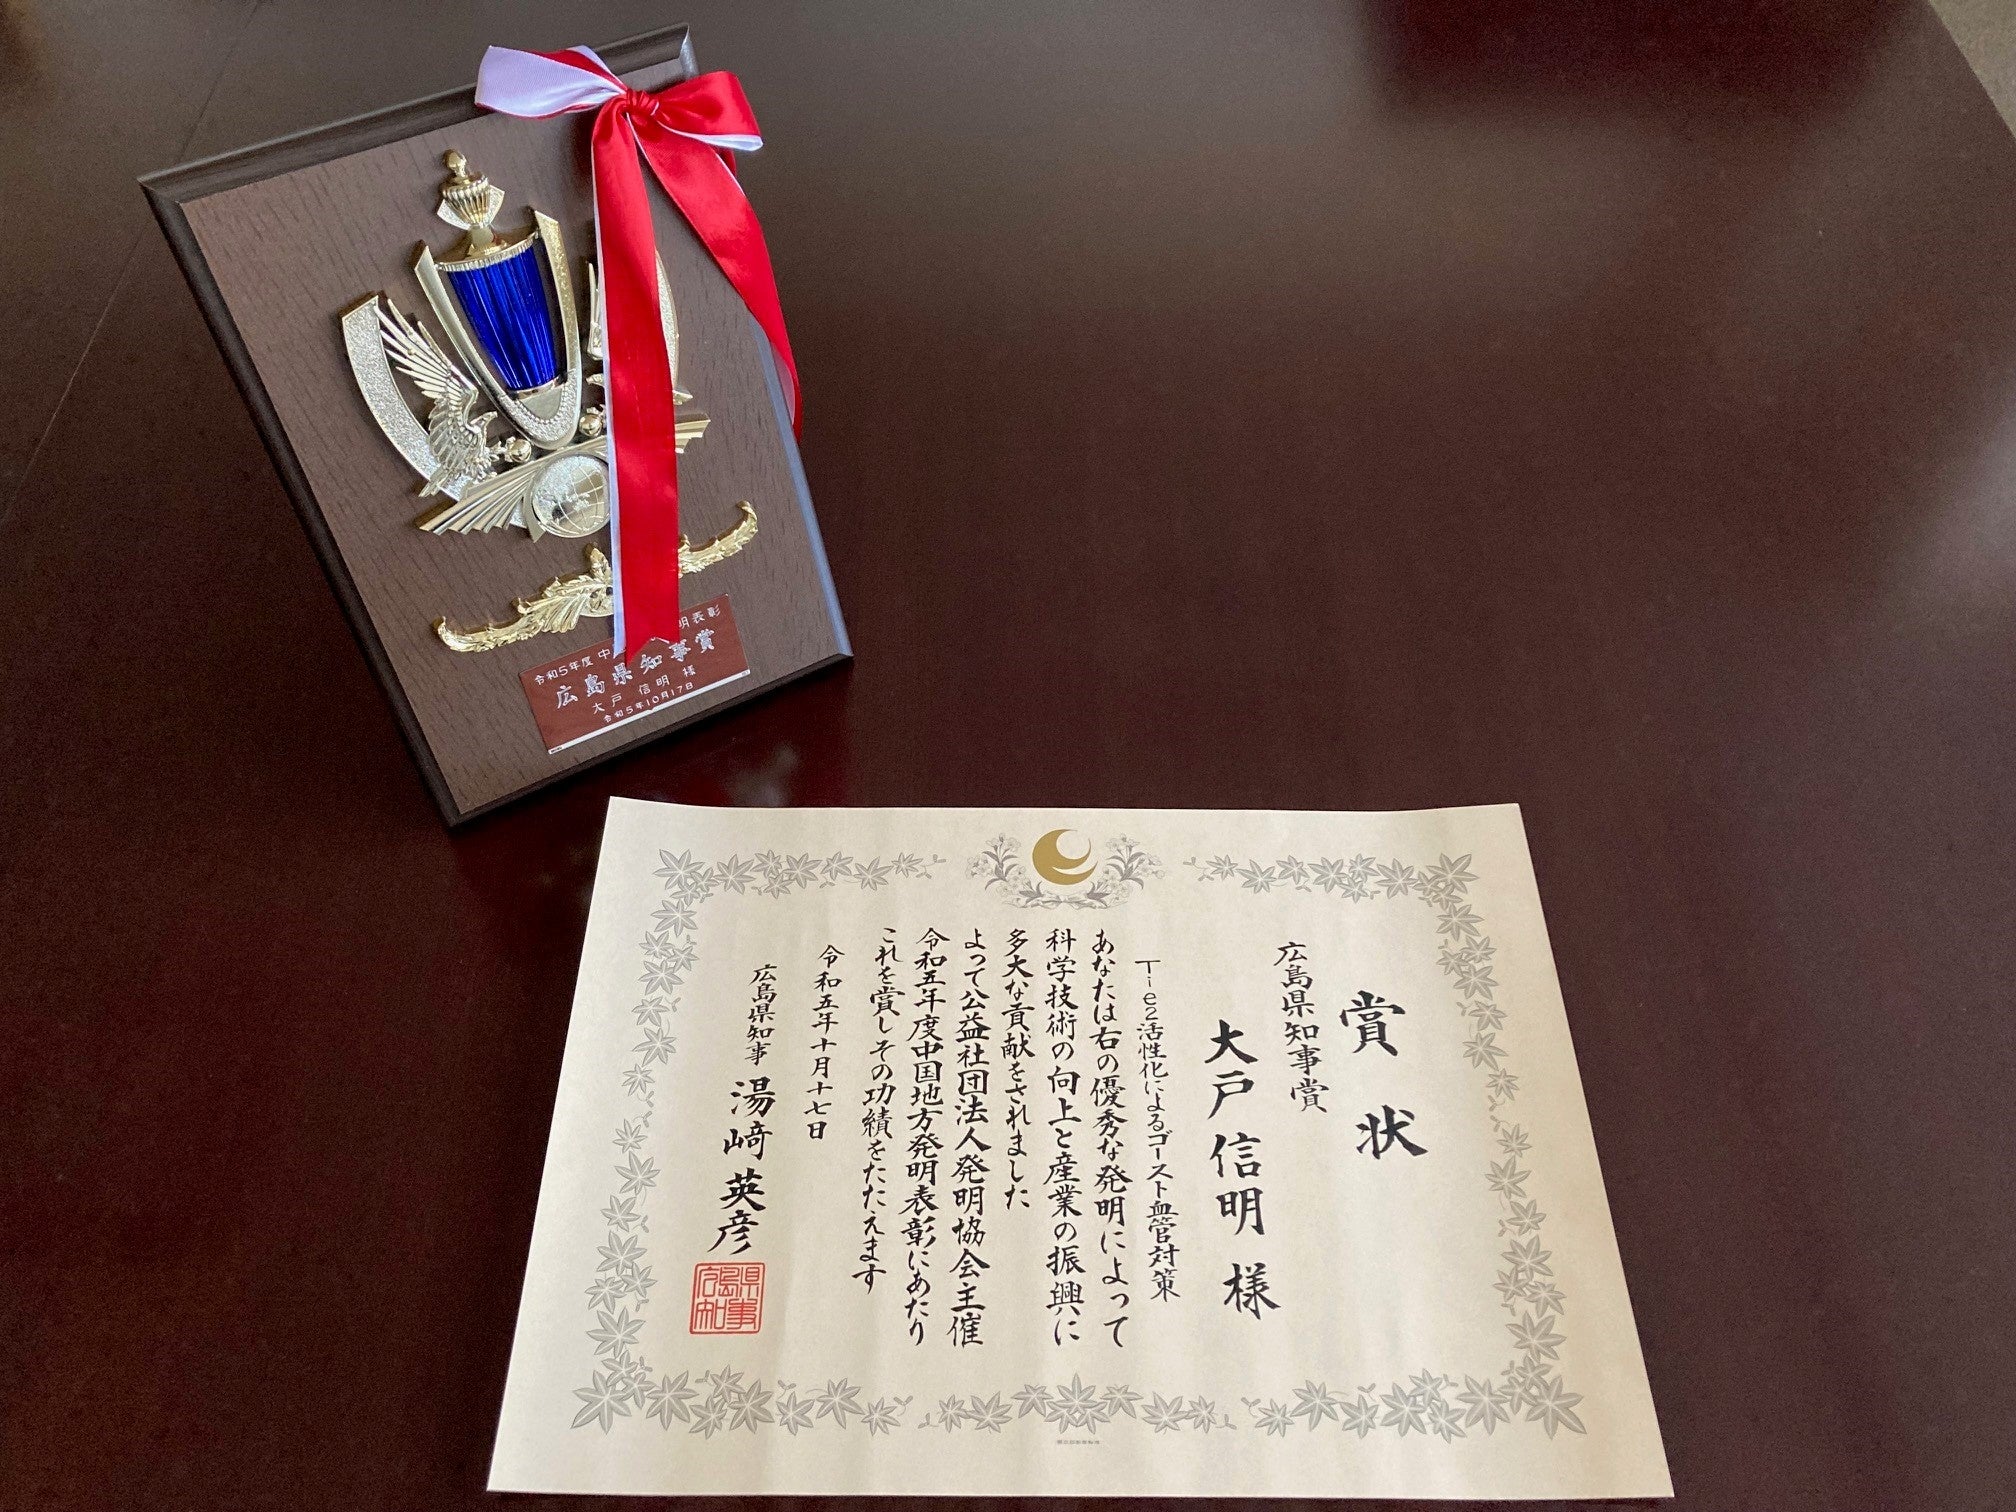 令和5年度 中
明表彰
広島県知事賞
大戸 信明 様
令和5年10月17日
賞状
広島県知事賞
大戸信明様
Tie2活性化によるゴースト血管対策
あなたは右の優秀な発明によって
科学技術の向上と産業の振興に
多大な貢献をされました
よって公益社団法人発明協会主催
令和五年度中国地方発明表彰にあたり
これを賞しその功績をたたえます
令和五年十月十七日
広島県知事 湯﨑英彦
広島県知事